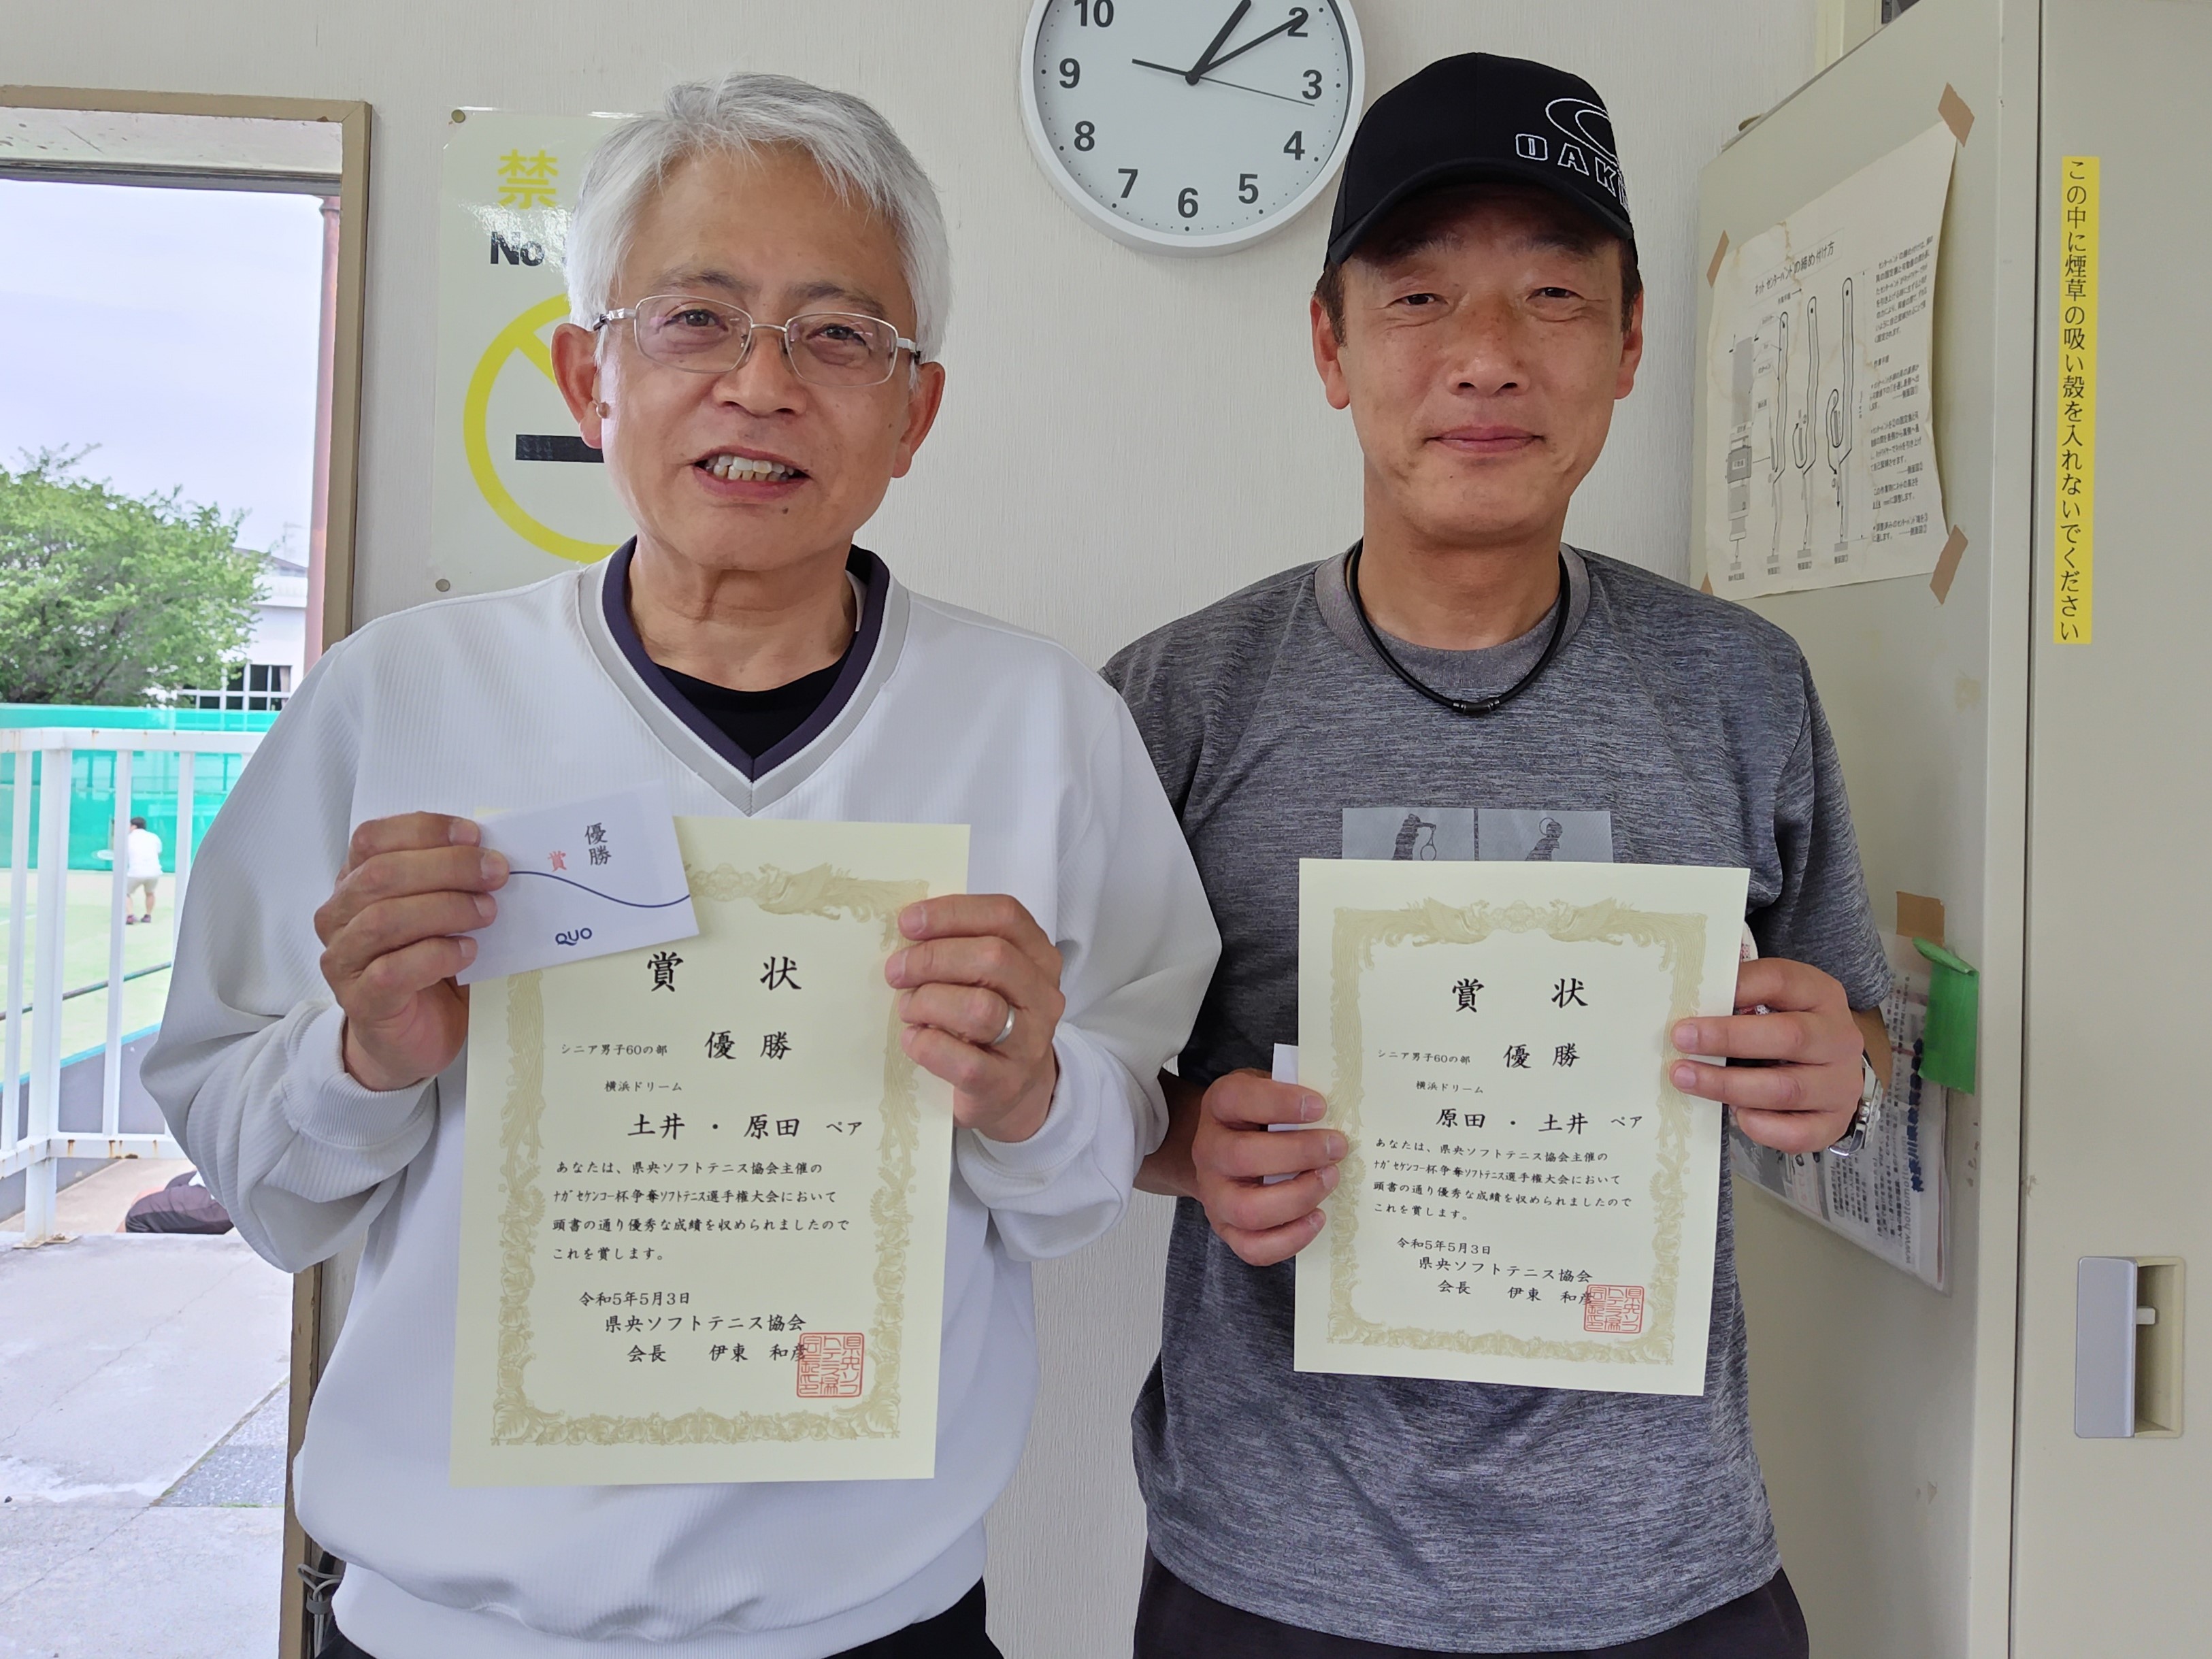 禁
No
10
2
9
3
8
4
7
6
5
OAK
ネットセンターベルトの締め付け方
この中に煙草の吸い殻を入れないでください
優勝
賞
QUO
賞 状
シニア男子60の部 優勝
横浜ドリーム
土井 ・ 原田 ペア
あなたは、県央ソフトテニス協会主催の
ナガセケンコー杯争奪ソフトテニス選手権大会において
頭書の通り優秀な成績を収められましたので
これを賞します。
令和5年5月3日
県央ソフトテニス協会
会長 伊東 和彦
賞 状
シニア男子60の部 優勝
横浜ドリーム
原田 ・ 土井 ペア
あなたは、県央ソフトテニス協会主催の
ナガセケンコー杯争奪ソフトテニス選手権大会において
頭書の通り優秀な成績を収められましたので
これを賞します。
令和5年5月3日
県央ソフトテニス協会
会長 伊東 和彦